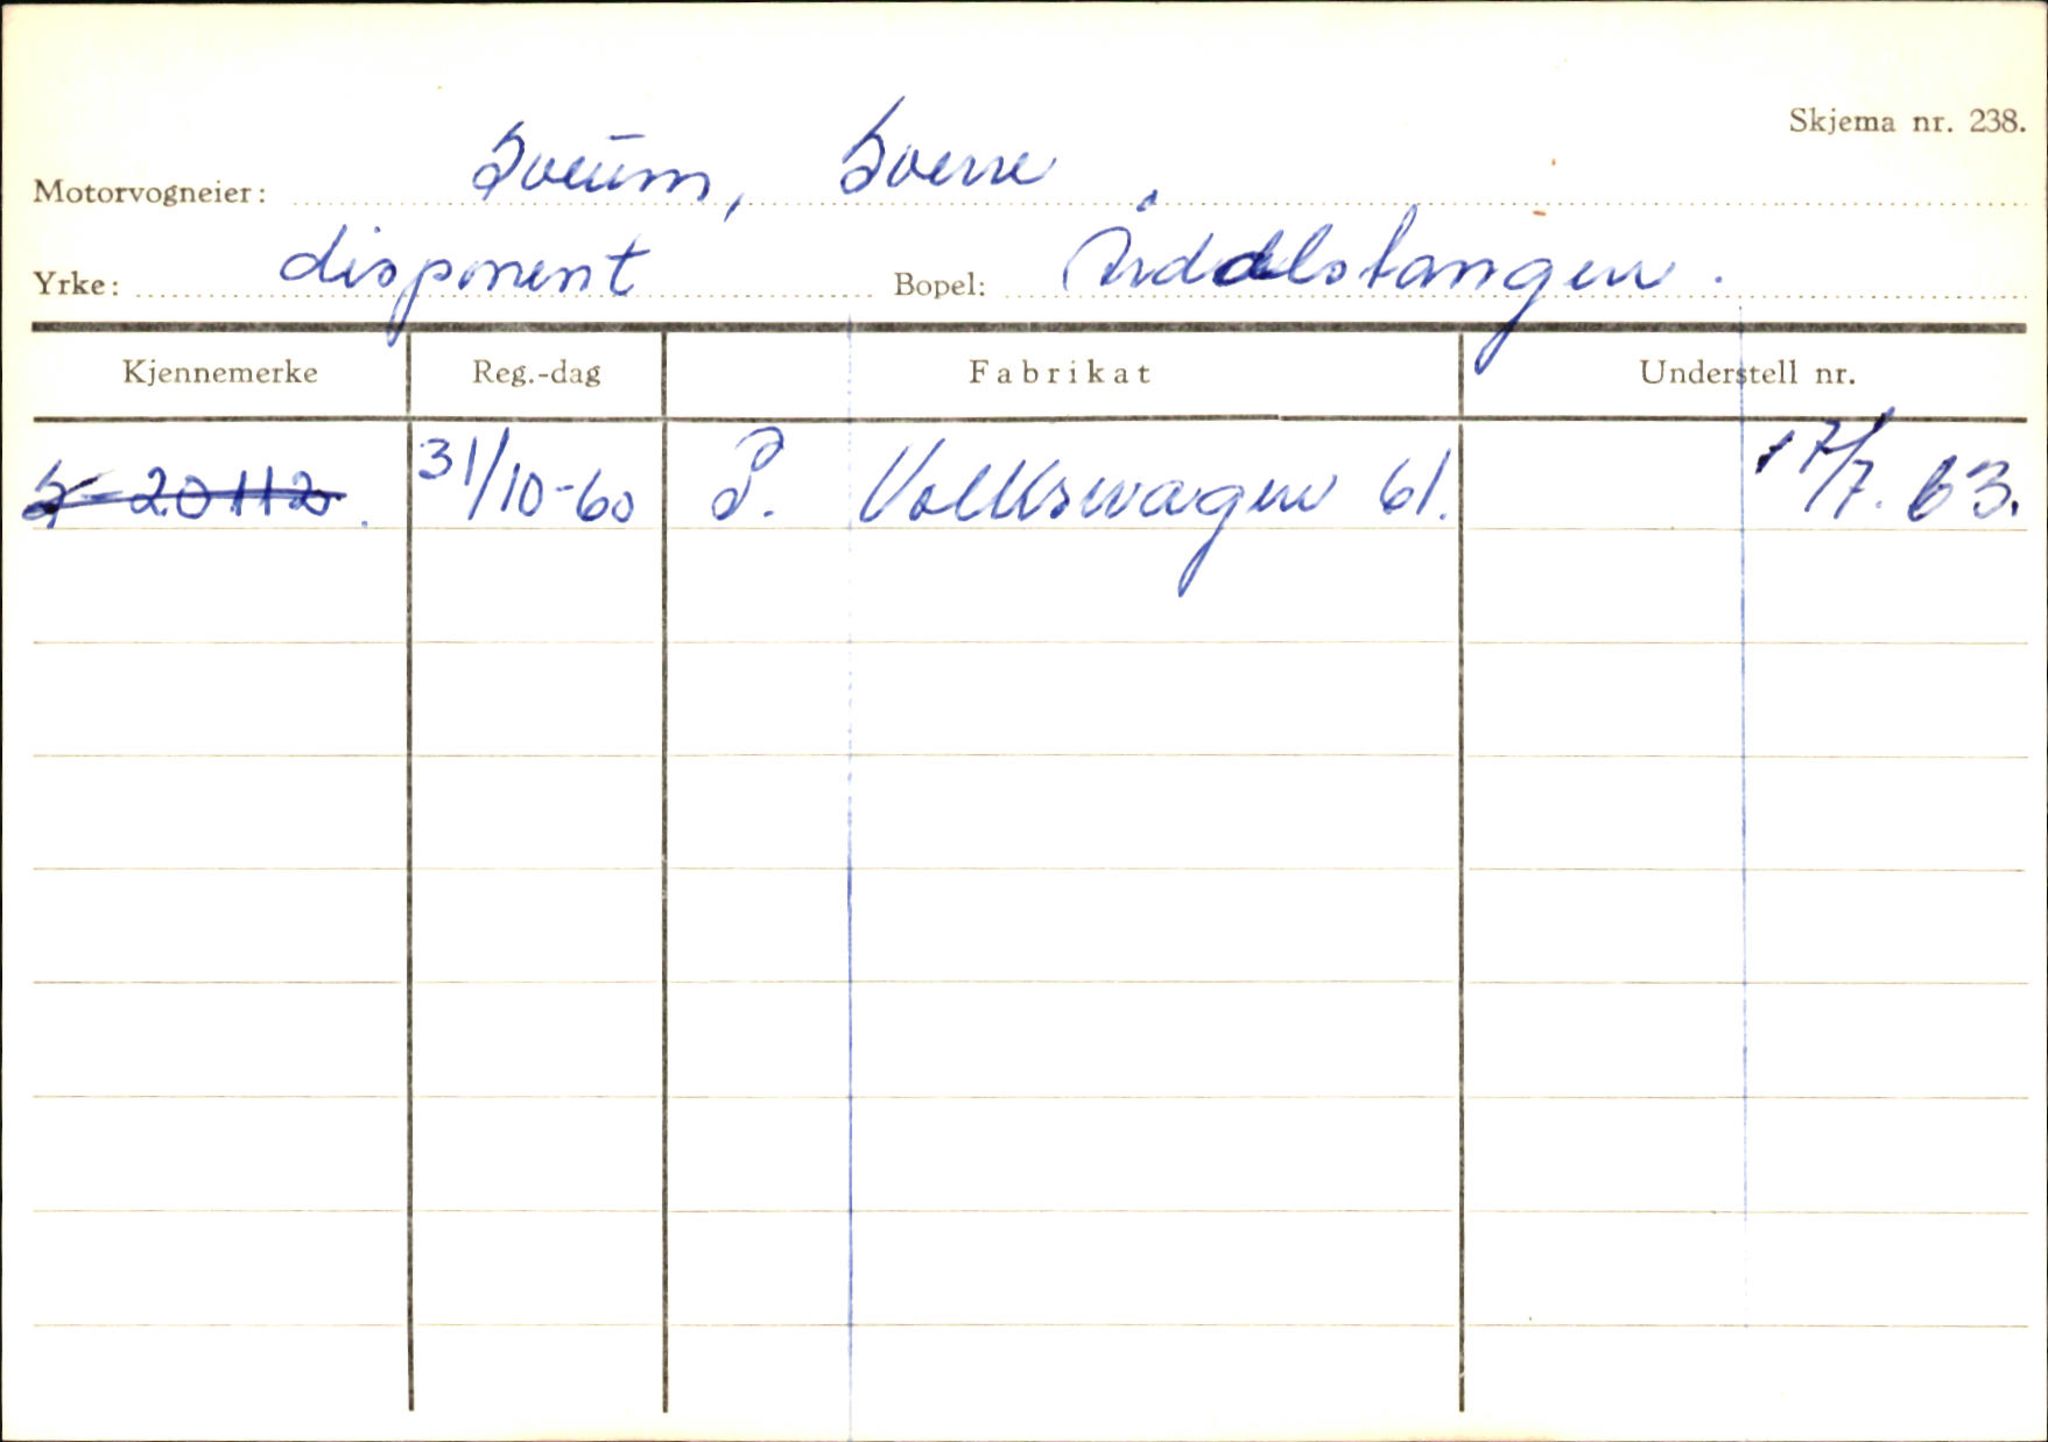 Skjema nr. 238.
Motorvogneier: Sveum, Sverre
Yrke: disponent Bopel: Årdalstangen.
Kjennemerke Reg.-dag Fabrikat Understell nr.
S-20112. 31/10-60 P. Volkswagen 61. 17/7. 63.